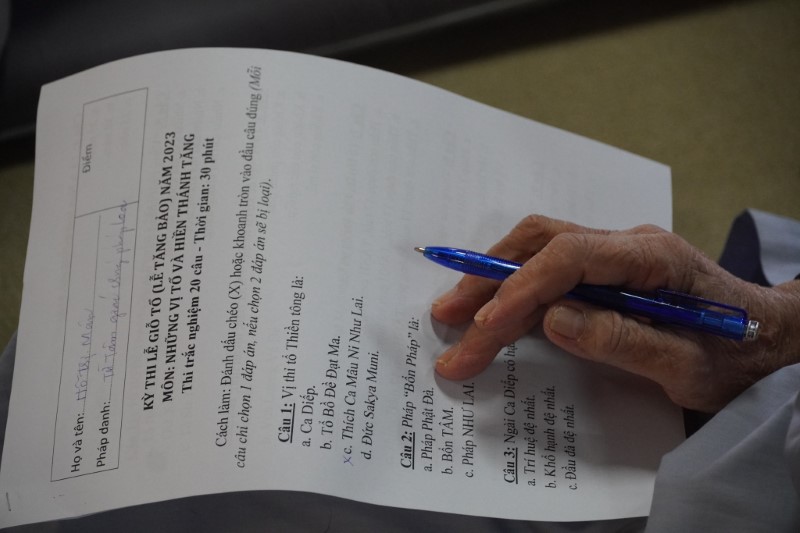 Họ và tên: Hồ Thị Mão
Pháp danh: Tỳ
Điểm
KỲ THI LỄ GIỖ TỔ (LỄ TĂNG BẢO) NĂM 2023
MÔN: NHỮNG VỊ TỔ VÀ HIỀN THÁNH TĂNG
Thi trắc nghiệm 20 câu - Thời gian: 30 phút
Cách làm: Đánh dấu chéo (X) hoặc khoanh tròn vào đầu câu đúng (Mỗi
câu chỉ chọn 1 đáp án, nếu chọn 2 đáp án sẽ bị loại).
Câu 1: Vị thi tổ Thiền tông là:
a. Ca Diếp.
b. Tổ Bồ Đề Đạt Ma.
X c. Thích Ca Mâu Ni Như Lai.
d. Đức Sakya Muni.
Câu 2: Pháp "Bổn Pháp" là:
a. Pháp Phật Đà.
b. Bổn TÂM.
c. Pháp NHƯ LAI.
Câu 3: Ngài Ca Diếp có
a. Trí huệ đệ nhất.
b. Khổ hạnh đệ nhất.
c. Đầu đà đệ nhất.